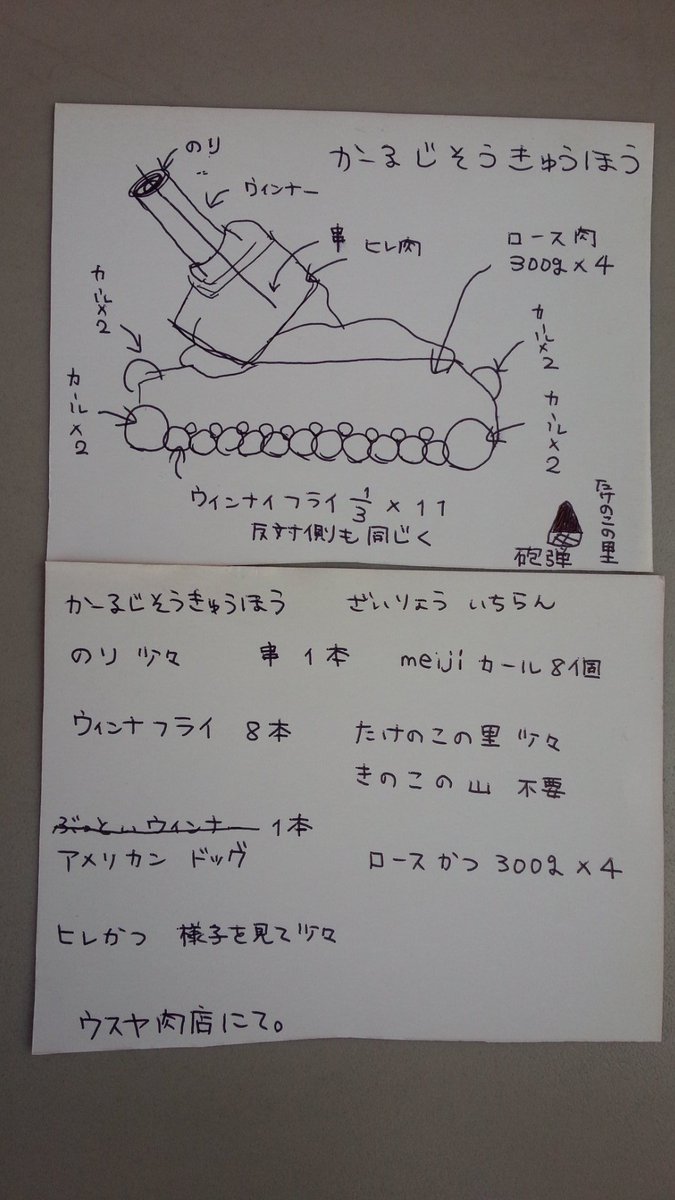 かーるじそうきゅうほう
のり
ウィンナー
串
ヒレ肉
ロース肉
300g×4
カール×2
カール×2
カール×2
カール×2
ウィンナイフライ 1/3 × 11
反対側も同じく
砲弾
たけのこの里
かーるじそうきゅうほう ざいりょう いちらん
のり 少々 串 1本 meiji カール 8個
ウィンナフライ 8本 たけのこの里 少々
きのこの山 不要
ぶっといウィンナー 1本
アメリカン ドッグ ロースかつ 300g×4
ヒレかつ 様子を見て少々
ウスヤ肉店にて。